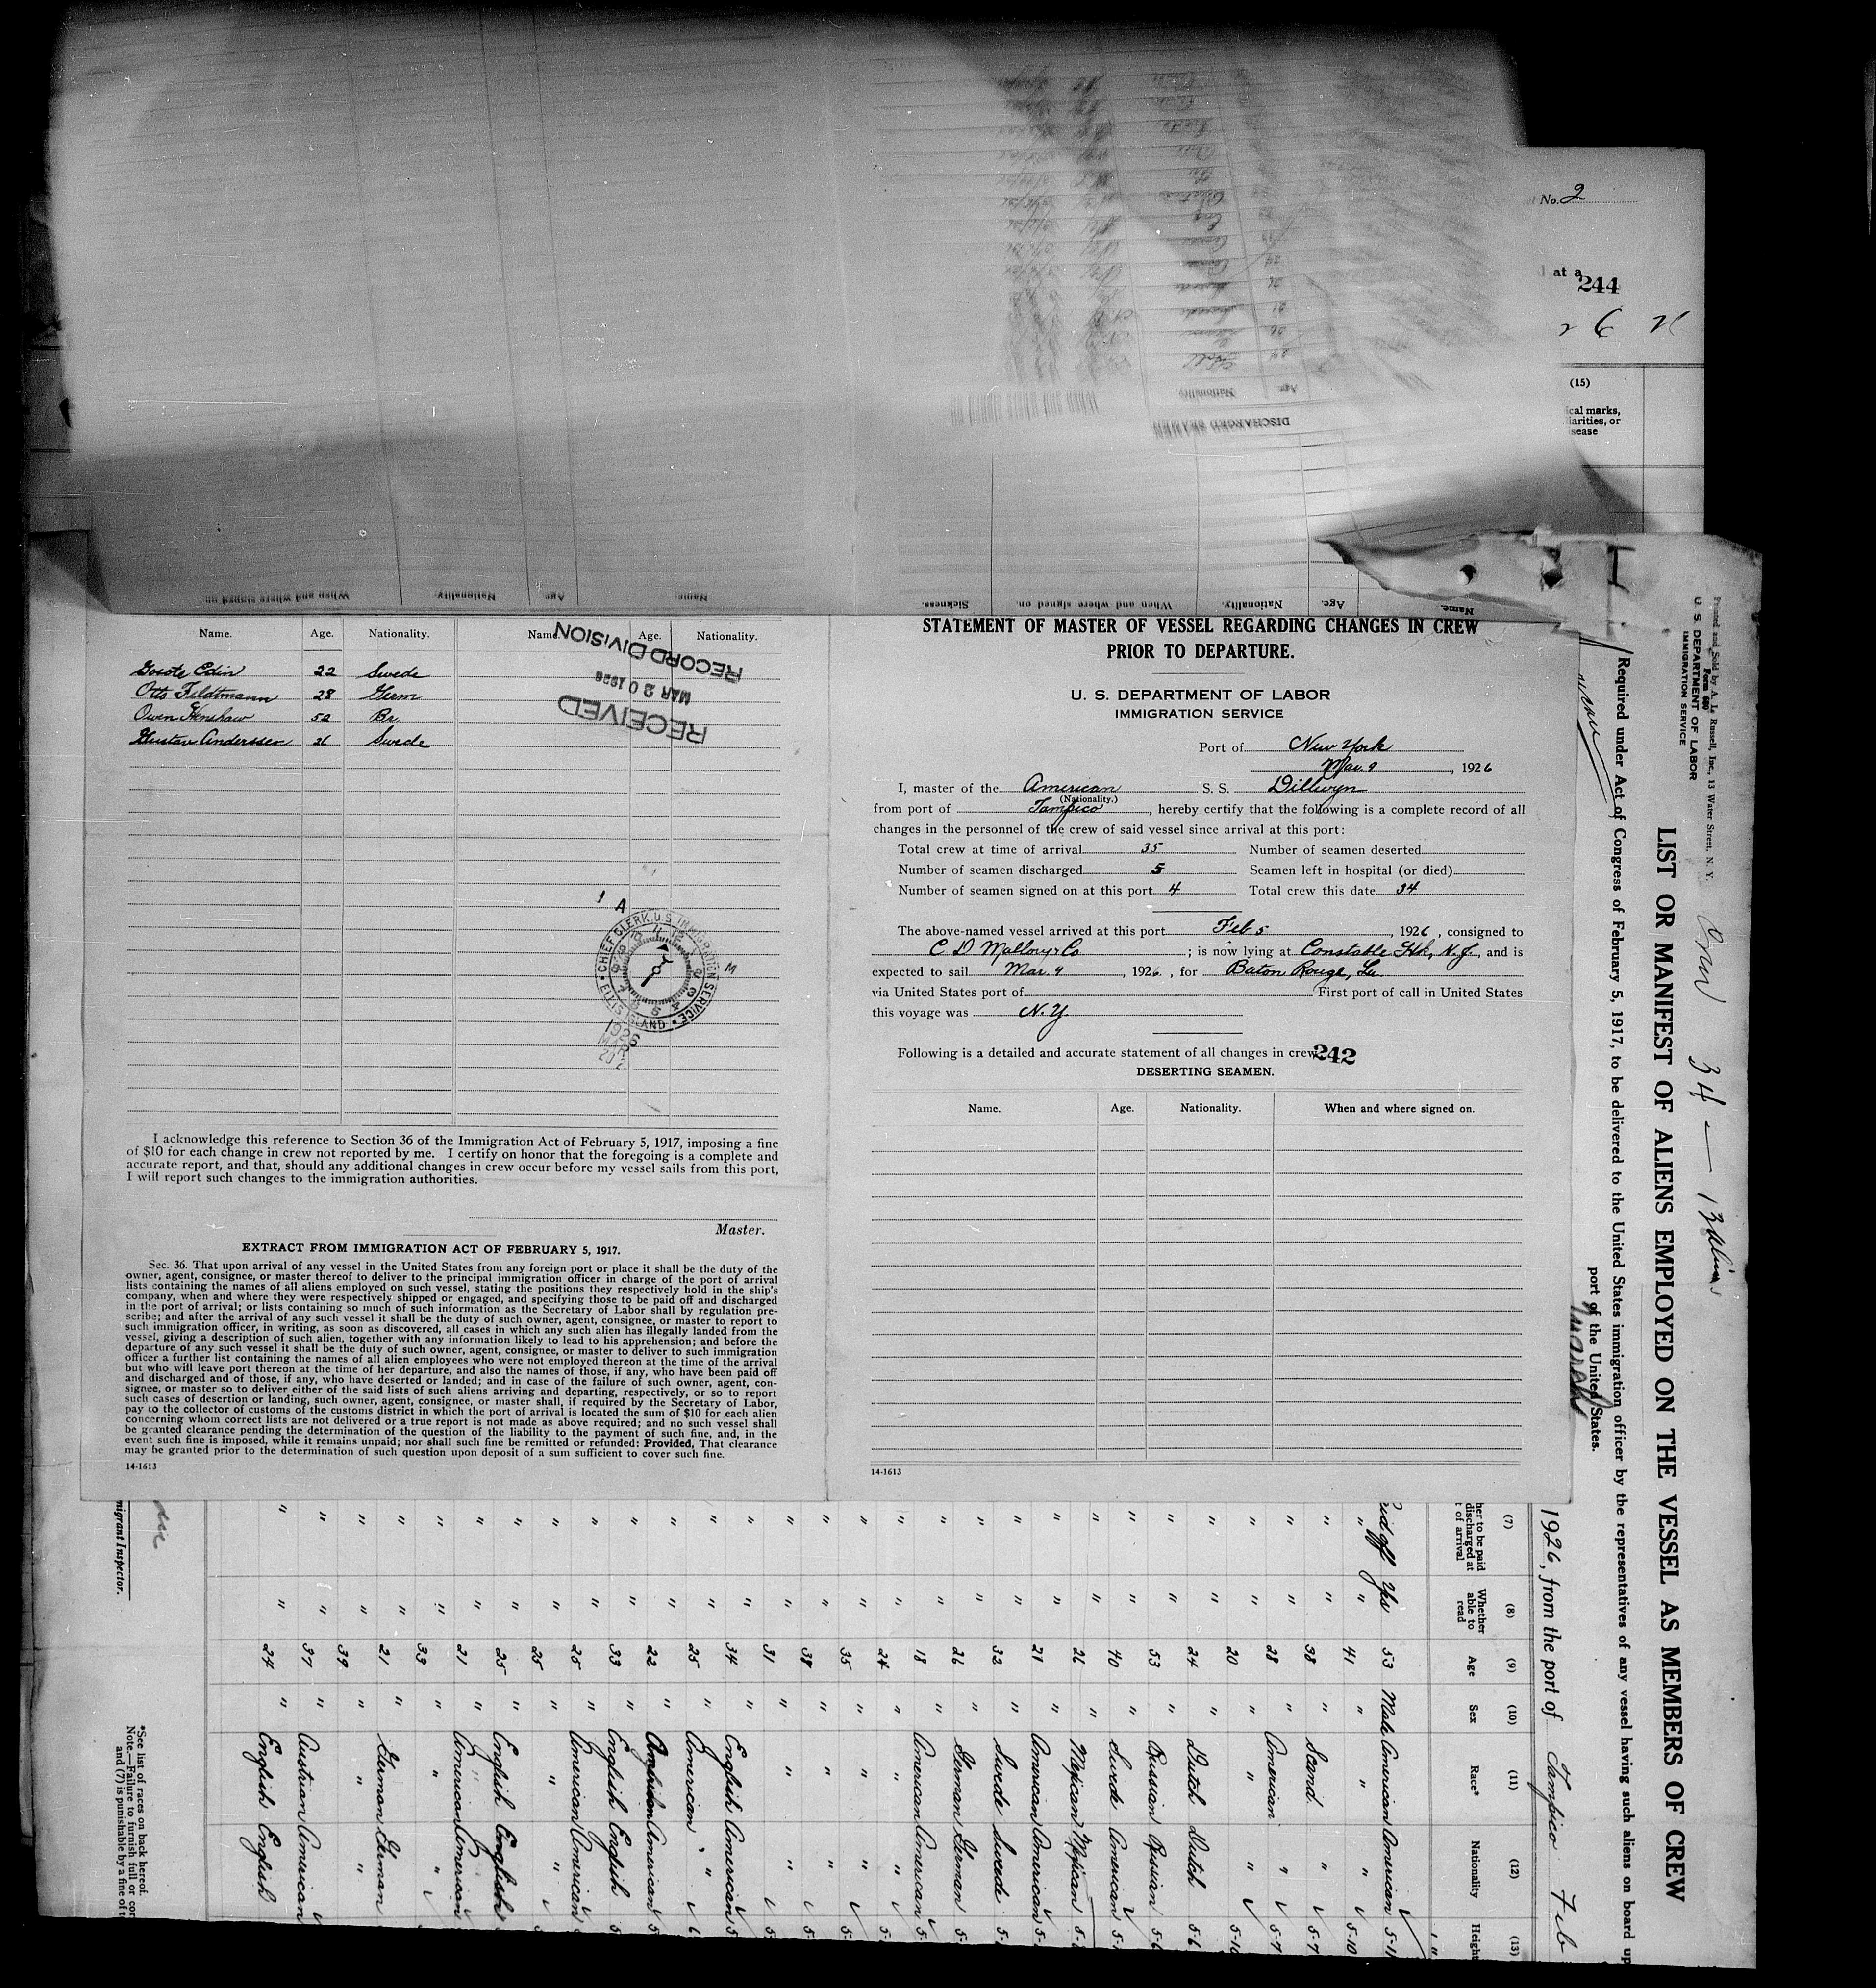 No. 2
at a
244
(15)
ical marks,
liarities, or
sease
DISCHARGED SEAMEN
Name. Age. Nationality. When and where signed on. Sickness.
Name. Age. Nationality. When and where signed on.
Name. Age. Nationality. Name. Age. Nationality.
Edin 22 Swede
Otto Feldtmann 28 Germ
Owen Henshaw 52 Br.
Gustav Anderssen 26 Swede
RECEIVED
MAR 20 1926
RECORD DIVISION
CHIEF CLERK, U.S. IMMIGRATION SERVICE • ELLIS ISLAND •
1926
MAR
20
I acknowledge this reference to Section 36 of the Immigration Act of February 5, 1917, imposing a fine
of $10 for each change in crew not reported by me. I certify on honor that the foregoing is a complete and
accurate report, and that, should any additional changes in crew occur before my vessel sails from this port,
I will report such changes to the immigration authorities.
Master.
EXTRACT FROM IMMIGRATION ACT OF FEBRUARY 5, 1917.
Sec. 36. That upon arrival of any vessel in the United States from any foreign port or place it shall be the duty of the
owner, agent, consignee, or master thereof to deliver to the principal immigration officer in charge of the port of arrival
lists containing the names of all aliens employed on such vessel, stating the positions they respectively hold in the ship's
company, when and where they were respectively shipped or engaged, and specifying those to be paid off and discharged
in the port of arrival; or lists containing so much of such information as the Secretary of Labor shall by regulation pre-
scribe; and after the arrival of any such vessel it shall be the duty of such owner, agent, consignee, or master to report to
such immigration officer, in writing, as soon as discovered, all cases in which any such alien has illegally landed from the
vessel, giving a description of such alien, together with any information likely to lead to his apprehension; and before the
departure of any such vessel it shall be the duty of such owner, agent, consignee, or master to deliver to such immigration
officer a further list containing the names of all alien employees who were not employed thereon at the time of the arrival
but who will leave port thereon at the time of her departure, and also the names of those, if any, who have been paid off
and discharged and of those, if any, who have deserted or landed; and in case of the failure of such owner, agent, con-
signee, or master so to deliver either of the said lists of such aliens arriving and departing, respectively, or so to report
such cases of desertion or landing, such owner, agent, consignee, or master shall, if required by the Secretary of Labor,
pay to the collector of customs of the customs district in which the port of arrival is located the sum of $10 for each alien
concerning whom correct lists are not delivered or a true report is not made as above required; and no such vessel shall
be granted clearance pending the determination of the question of the liability to the payment of such fine, and, in the
event such fine is imposed, while it remains unpaid; nor shall such fine be remitted or refunded: Provided, That clearance
may be granted prior to the determination of such question upon deposit of a sum sufficient to cover such fine.
14-1613
STATEMENT OF MASTER OF VESSEL REGARDING CHANGES IN CREW
PRIOR TO DEPARTURE.
U. S. DEPARTMENT OF LABOR
IMMIGRATION SERVICE
Port of New York
Mar. 9, 1926
I, master of the American S. S. Dillwyn
(Nationality.)
from port of Tampico, hereby certify that the following is a complete record of all
changes in the personnel of the crew of said vessel since arrival at this port:
Total crew at time of arrival 35 Number of seamen deserted
Number of seamen discharged 5 Seamen left in hospital (or died)
Number of seamen signed on at this port 4 Total crew this date 34
The above-named vessel arrived at this port Feb 5, 1926, consigned to
C D Mallory & Co; is now lying at Constable Hk, N.J., and is
expected to sail Mar. 9, 1926, for Baton Rouge, La.
via United States port of First port of call in United States
this voyage was N.Y.
Following is a detailed and accurate statement of all changes in crew
242
DESERTING SEAMEN.
Name. Age. Nationality. When and where signed on.
14-1613
Printed and Sold by A. L. Russell, Inc., 13 Water Street, N. Y.
Form 680
U. S. DEPARTMENT OF LABOR
IMMIGRATION SERVICE
34 —
LIST OR MANIFEST OF ALIENS EMPLOYED ON THE VESSEL AS MEMBERS OF CREW
Required under Act of Congress of February 5, 1917, to be delivered to the United States immigration officer by the representatives of any vessel having such aliens on board up
port of the United States.
1926, from the port of Tampico Feb
(7) (8) (9) (10) (11) (12) (13)
her to be paid
discharged at
t of arrival
Whether
able to
read
Age Sex Race* Nationality Height
Paid off Yes 53 Male American American 5-11
" " 41 " " " 5-10
" " 38 " Scand " 5-7
" " 28 " American " 5-7
" " 20 " " " 5-10
" " 24 " Dutch Dutch 5-6
" " 53 " Russian Russian 5-6
" " 40 " Swede American 5-
" " 26 " Mexican Mexican 5-
" " 21 " American American 5-
" " 32 " Swede Swede 5-
" " 26 " German German 5-
" " 18 " American American 5-
" " 24 " " " 5-
" " 35 " " " 5-
" " 38 " " " 5-
" " 31 " " " 5-
" " 34 " English American 5
" " 25 " American " 6
" " 22 " American 5
" " 33 " English English 5
" " 25 " American American
" " 25 " " "
" " 25 " English English
" " 21 " American American
" " 33 " " "
" " 21 " German German
" " 39 " " "
" " 37 " Austrian American
" " 24 " English English
migrant Inspector.
*See list of races on back hereof.
Note.—Failure to furnish full or cor
and (7) is punishable by a fine of t